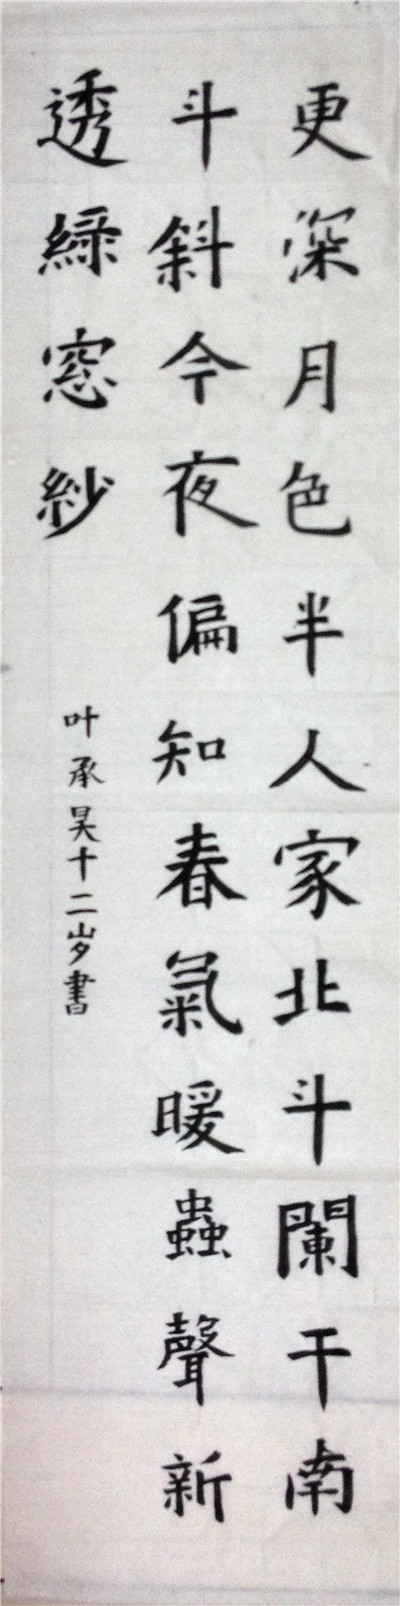 更深月色半人家北斗闌干南
斗斜今夜偏知春氣暖蟲聲新
透綠窓紗
叶承昊十二岁書